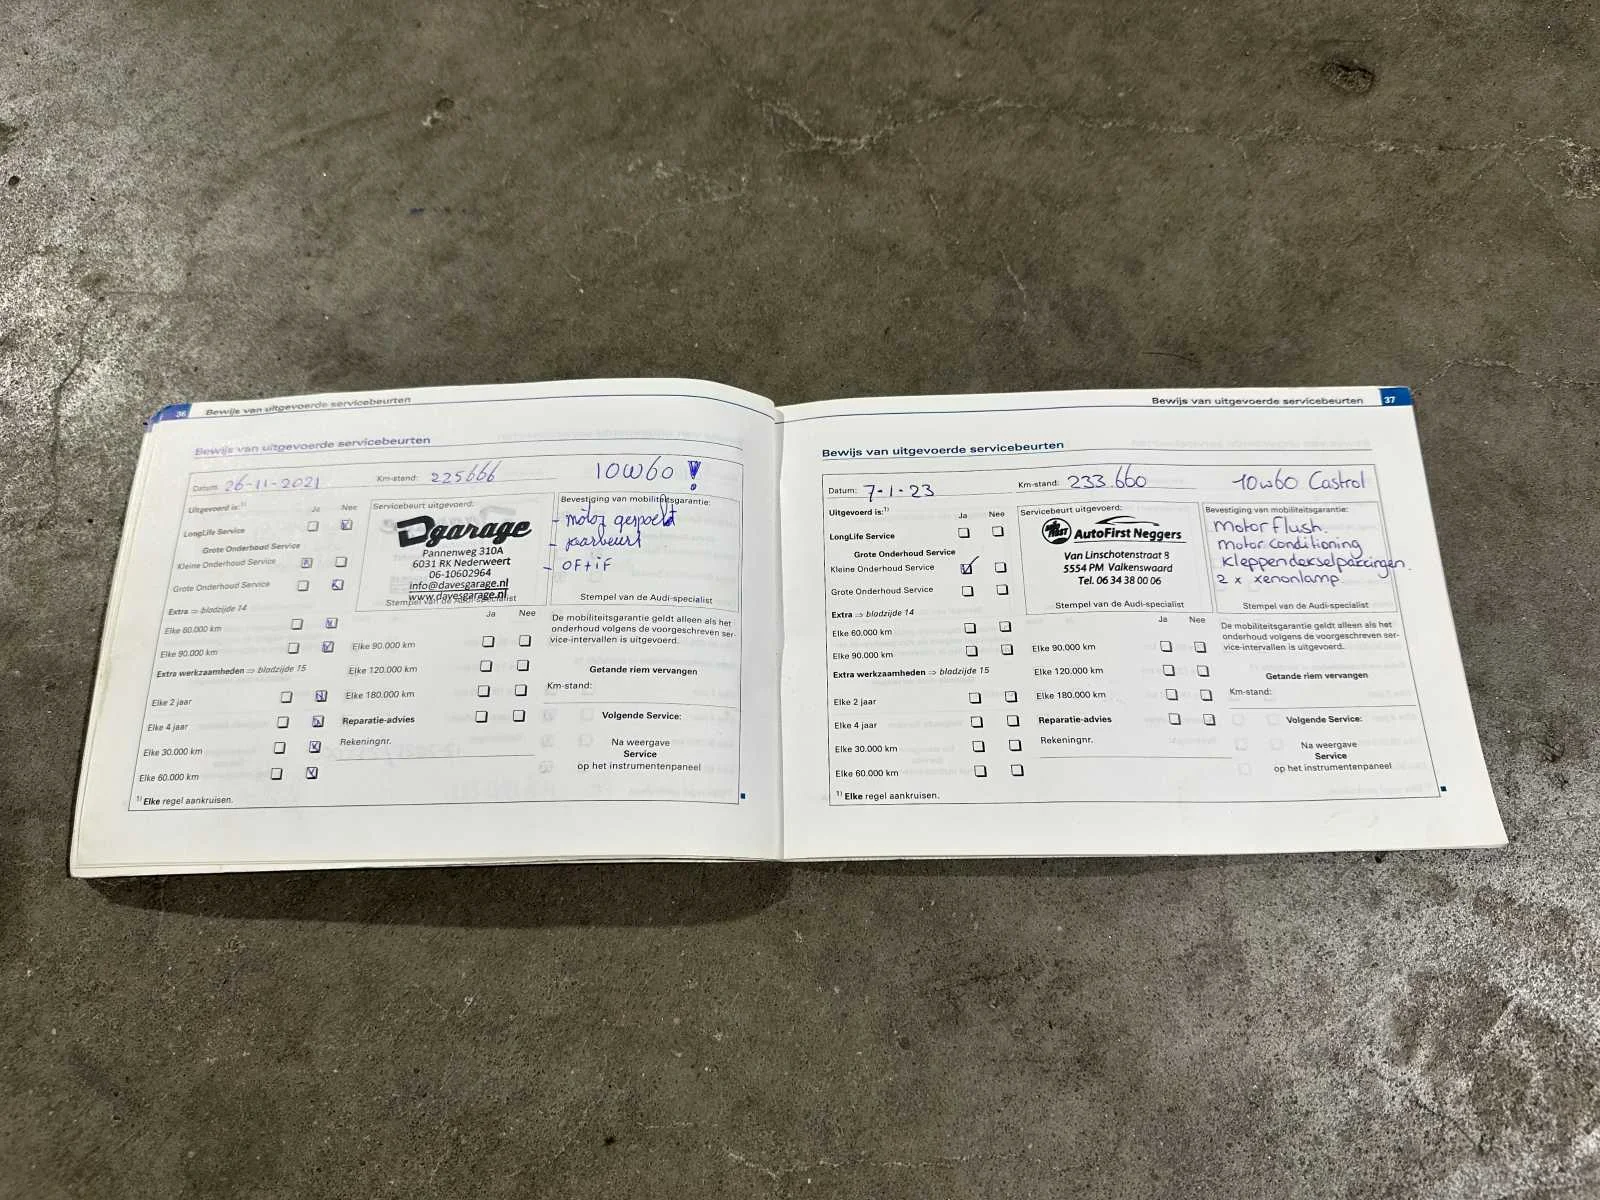 36 Bewijs van uitgevoerde servicebeurten
Bewijs van uitgevoerde servicebeurten
Datum: 26-11-2021 Km-stand: 225666 10W60 !
Uitgevoerd is:¹⁾ Ja Nee
LongLife Service
Grote Onderhoud Service
Kleine Onderhoud Service
Grote Onderhoud Service
Extra ⇒ bladzijde 14
Elke 60.000 km
Elke 90.000 km
Extra werkzaamheden ⇒ bladzijde 15
Elke 2 jaar
Elke 4 jaar
Elke 30.000 km
Elke 60.000 km
¹⁾ Elke regel aankruisen.
Servicebeurt uitgevoerd:
Dgarage
Pannenweg 310A
6031 RK Nederweert
06-10602964
info@davesgarage.nl
www.davesgarage.nl
Stempel van de Audi-specialist
Ja Nee
Elke 90.000 km
Elke 120.000 km
Elke 180.000 km
Reparatie-advies
Rekeningnr.
Bevestiging van mobiliteitsgarantie:
- motor gespoeld
- jaarbeurt
- OF+iF
Stempel van de Audi-specialist
De mobiliteitsgarantie geldt alleen als het
onderhoud volgens de voorgeschreven ser-
vice-intervallen is uitgevoerd.
Getande riem vervangen
Km-stand:
Volgende Service:
Na weergave
Service
op het instrumentenpaneel
Bewijs van uitgevoerde servicebeurten 37
Bewijs van uitgevoerde servicebeurten
Datum: 7-1-23 Km-stand: 233.660 10W60 Castrol
Uitgevoerd is:¹⁾ Ja Nee
LongLife Service
Grote Onderhoud Service
Kleine Onderhoud Service
Grote Onderhoud Service
Extra ⇒ bladzijde 14
Elke 60.000 km
Elke 90.000 km
Extra werkzaamheden ⇒ bladzijde 15
Elke 2 jaar
Elke 4 jaar
Elke 30.000 km
Elke 60.000 km
¹⁾ Elke regel aankruisen.
Servicebeurt uitgevoerd:
AutoFirst Neggers
Van Linschotenstraat 8
5554 PM Valkenswaard
Tel. 06 34 38 00 06
Stempel van de Audi-specialist
Ja Nee
Elke 90.000 km
Elke 120.000 km
Elke 180.000 km
Reparatie-advies
Rekeningnr.
Bevestiging van mobiliteitsgarantie:
Motor flush.
Motor conditioning
Kleppendekselpakkingen.
2 x xenonlamp
Stempel van de Audi-specialist
De mobiliteitsgarantie geldt alleen als het
onderhoud volgens de voorgeschreven ser-
vice-intervallen is uitgevoerd.
Getande riem vervangen
Km-stand:
Volgende Service:
Na weergave
Service
op het instrumentenpaneel